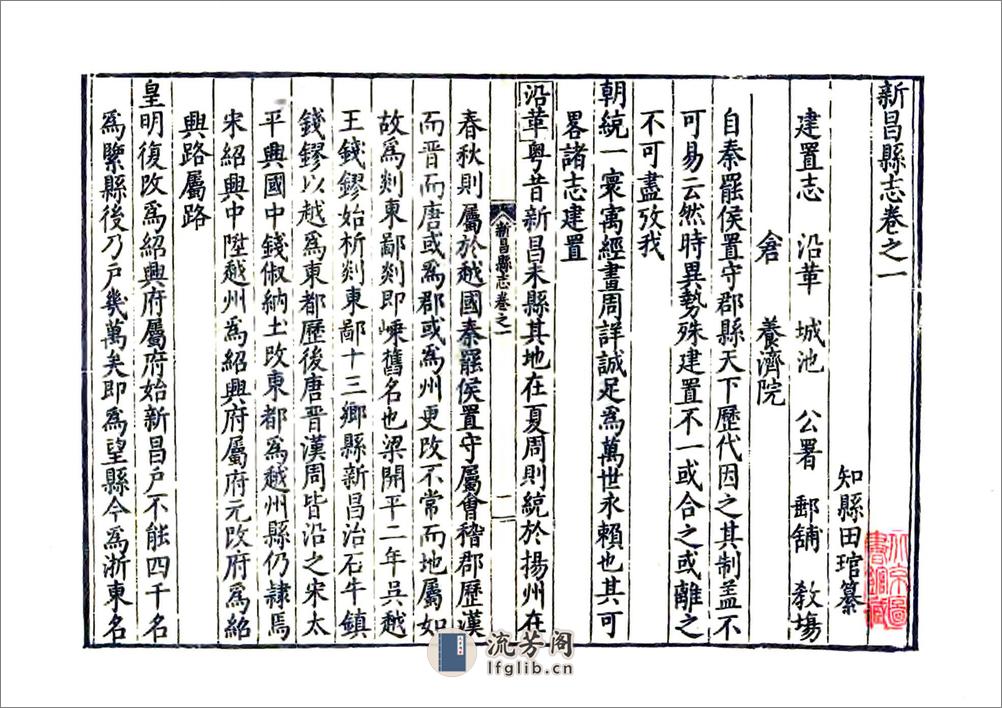 新昌縣志卷之一
知縣田琯纂
建置志 沿革 城池 公署 郵舖 教塲
倉 養濟院
自秦罷侯置守郡縣天下歷代因之其制盖不
可易云然時異勢殊建置不一或合之或離之
不可盡攷我
朝統一寰寓經畫周詳誠足爲萬世永賴也其可
畧諸志建置
沿革粤昔新昌未縣其地在夏周則統於揚州在
新昌縣志卷之一
一
春秋則屬於越國秦罷侯置守屬會稽郡歷漢
而晋而唐或爲郡或爲州更改不常而地屬如
故爲剡東鄙剡即嵊舊名也梁開平二年吳越
王錢鏐始析剡東鄙十三鄉縣新昌治石牛鎮
錢鏐以越爲東都歷後唐晋漢周皆沿之宋太
平興國中錢俶納土改東都爲越州縣仍隸焉
宋紹興中陞越州爲紹興府屬府元改府爲紹
興路屬路
皇明復改爲紹興府屬府始新昌戶不能四千名
爲緊縣後乃戶幾萬矣即爲望縣今爲浙東名
北京圖書館藏
流芳阁
lfglib.cn